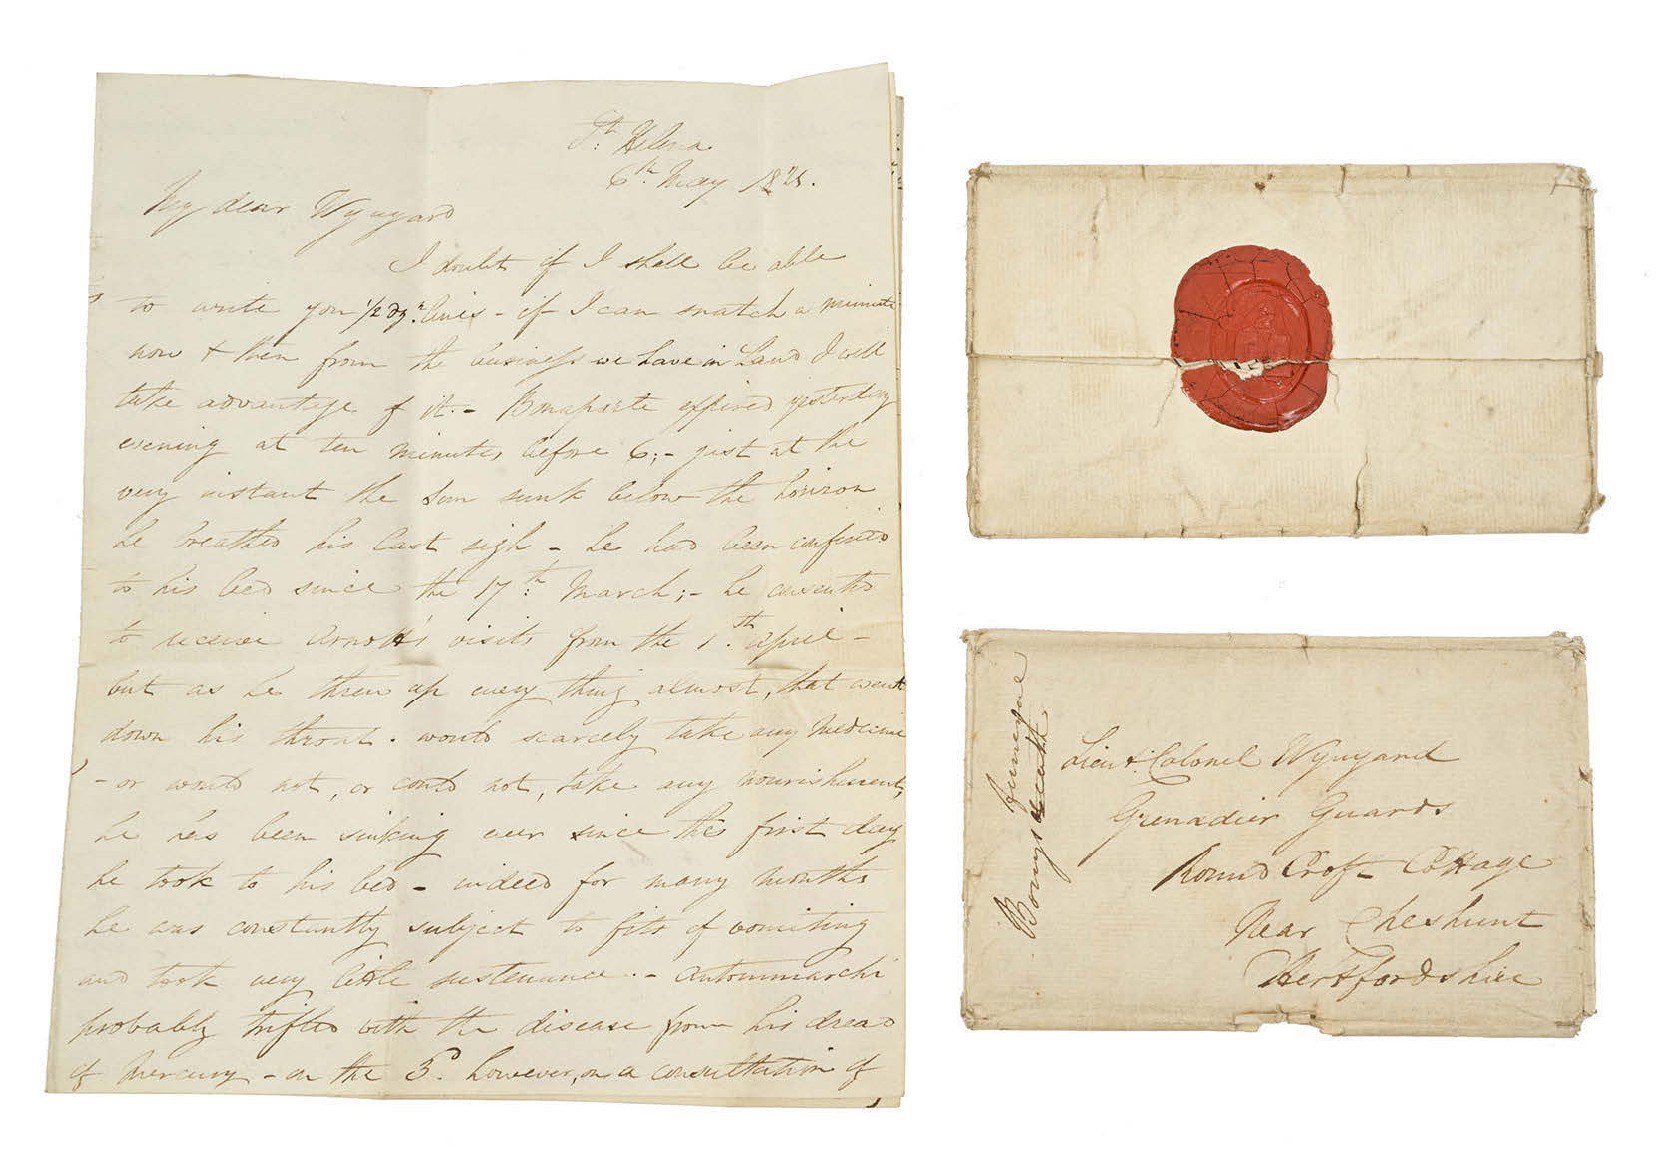 St. Helena
6th May 1821.
My dear Wynyard
I doubt if I shall be able
to write you 1/2 dzn lines - if I can snatch a minute
now & then from the business we have in hand I will
take advantage of it. - Bonaparte expired yesterday
evening at ten minutes before 6; - just at the
very instant the Sun sunk below the horizon
he breathed his last sigh - he had been confined
to his bed since the 17th March; - he consented
to receive Arnott's visits from the 1st April -
but as he threw up every thing almost, that went
down his throat. would scarcely take any medicine
- or would not, or could not, take any nourishment,
he has been sinking ever since the first day
he took to his bed - indeed for many months
he was constantly subject to fits of vomiting
and took very little sustenance. - Antommarchi
probably trifled with the disease from his dread
of Mercury - on the 3d. however, on a consultation of
Lieut. Colonel Wynyard
Grenadier Guards
Round Croft Cottage
Near Cheshunt
Hertfordshire
Bonys death